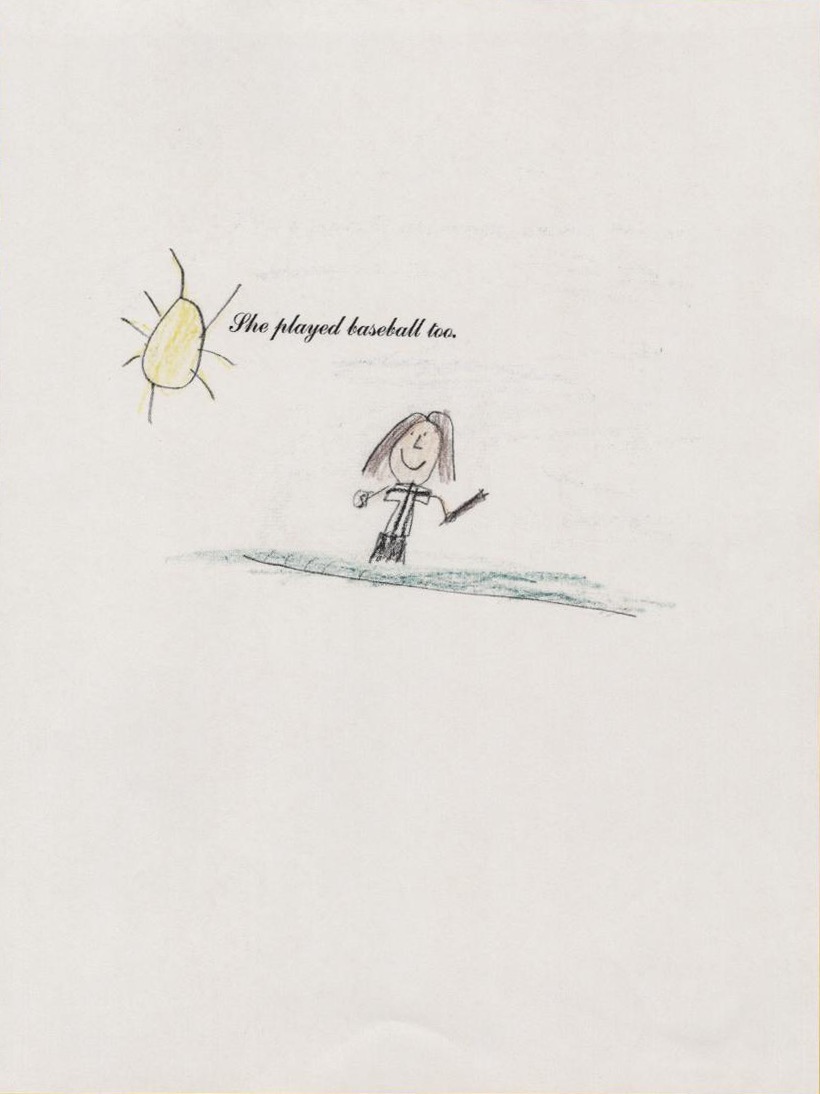 She played baseball too.